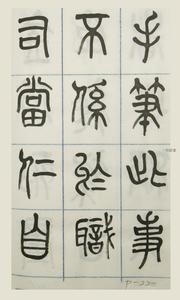 手筆此事
不係於職
司當仁自